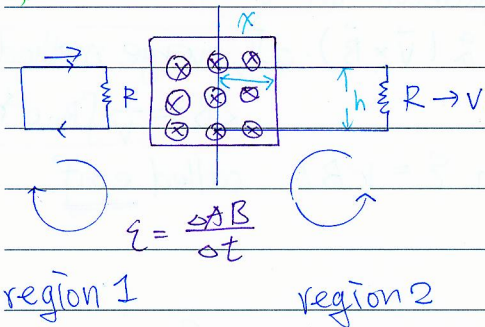 x
R
h
R → V
ε = ΔAB / Δt
region 1
region 2